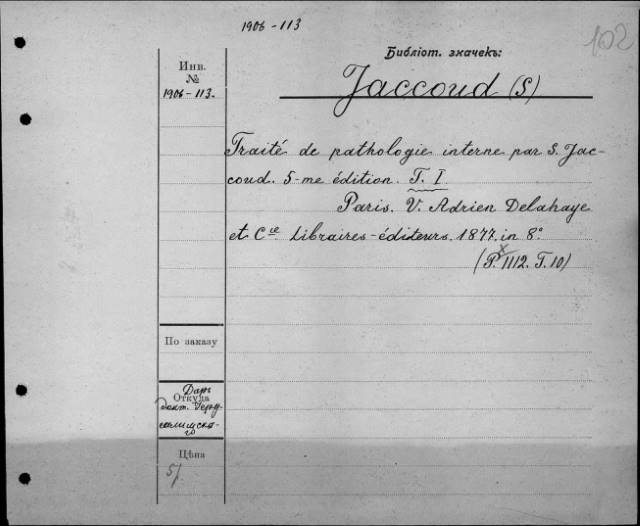 1906-113
102
Библіот. значекъ:
Инв.
№
1906-113.
Jaccoud (S)
Traité de pathologie interne par S. Jac-
coud. 5-me édition. T. I
Paris. V. Adrien Delahaye
et Cie Libraires-éditeurs. 1877. in 8°
(P. 1112. T. 10)
По заказу
Откуда
Даръ
докт. Иеру-
салимска-
го
Цѣна
5/